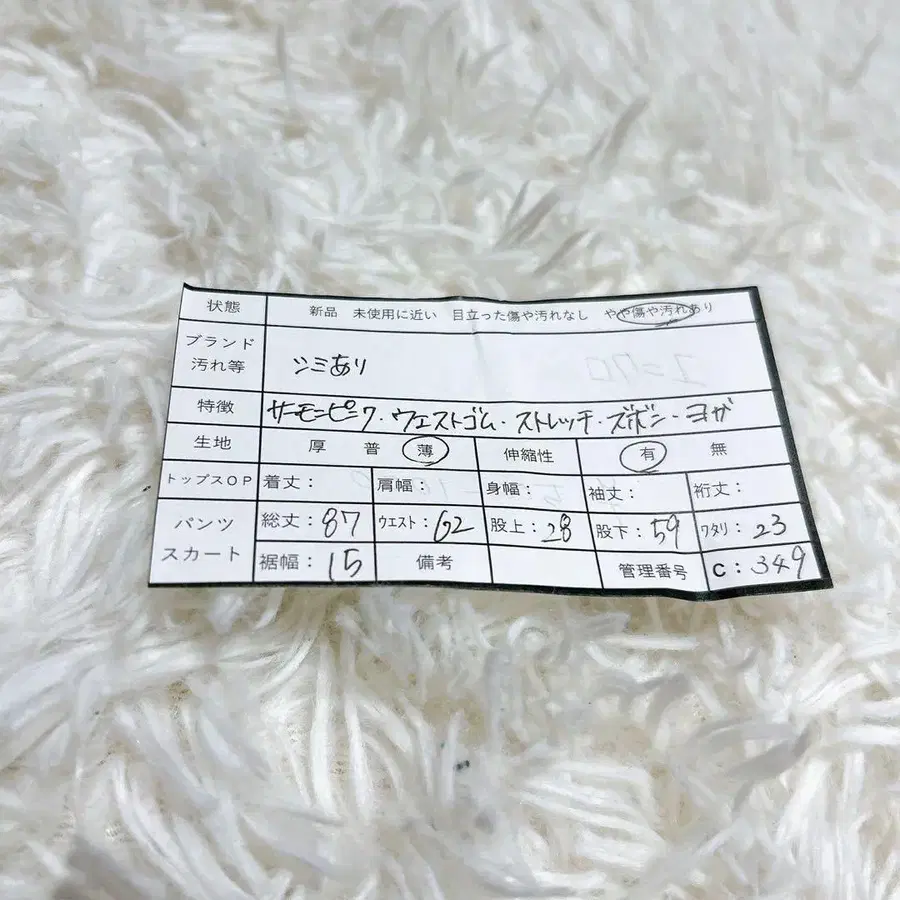 状態 新品 未使用に近い 目立った傷や汚れなし やや傷や汚れあり
ブランド
汚れ等 シミあり
特徴 サーモンピンク・ウエストゴム・ストレッチ・ズボン・ヨガ
生地 厚 普 薄 伸縮性 有 無
トップスOP 着丈: 肩幅: 身幅: 袖丈: 裄丈:
パンツ 総丈:87 ウエスト:62 股上:28 股下:59 ワタリ:23
スカート 裾幅:15 備考 管理番号 C:349